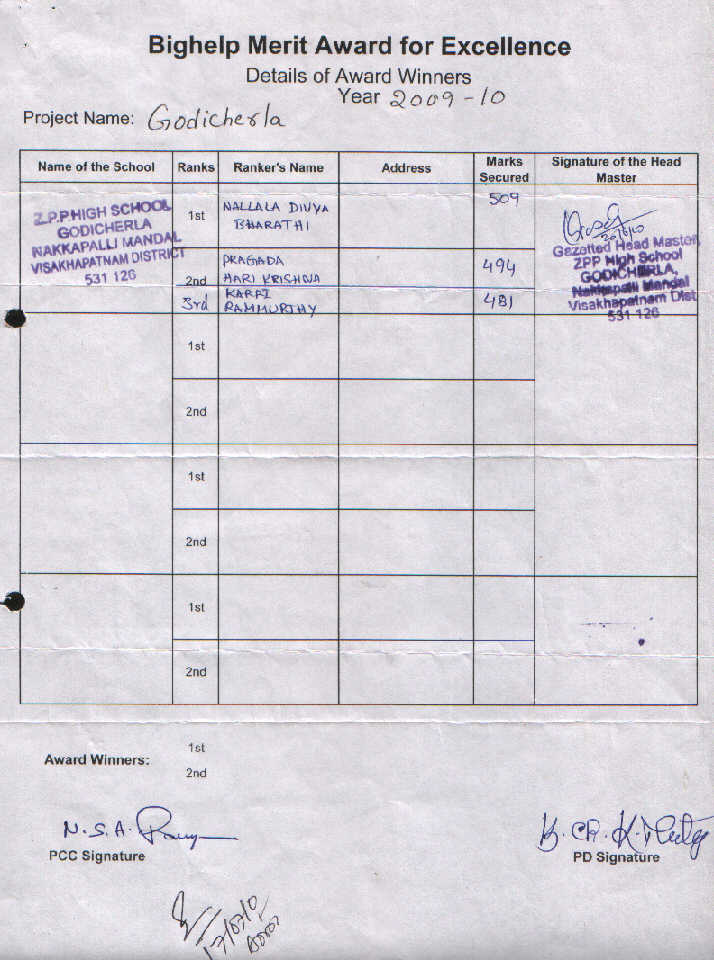 Bighelp Merit Award for Excellence
Details of Award Winners
Year 2009-10
Project Name: Godicherla
Name of the School Ranks Ranker's Name Address Marks Secured Signature of the Head Master
Z.P.P HIGH SCHOOL
GODICHERLA
NAKKAPALLI MANDAL
VISAKHAPATNAM DISTRICT
531 126
1st NALLALA DIVYA BHARATHI 509
2nd PRAGADA HARI KRISHNA 494
3rd RAMMURTHY 481
Gazatted Head Master
ZPP High School
GODICHERLA,
Nakkapalli Mandal
Visakhapatnam Dist
531 126
1st
2nd
1st
2nd
1st
2nd
Award Winners: 1st
2nd
N.S.A.
PCC Signature
K.
PD Signature